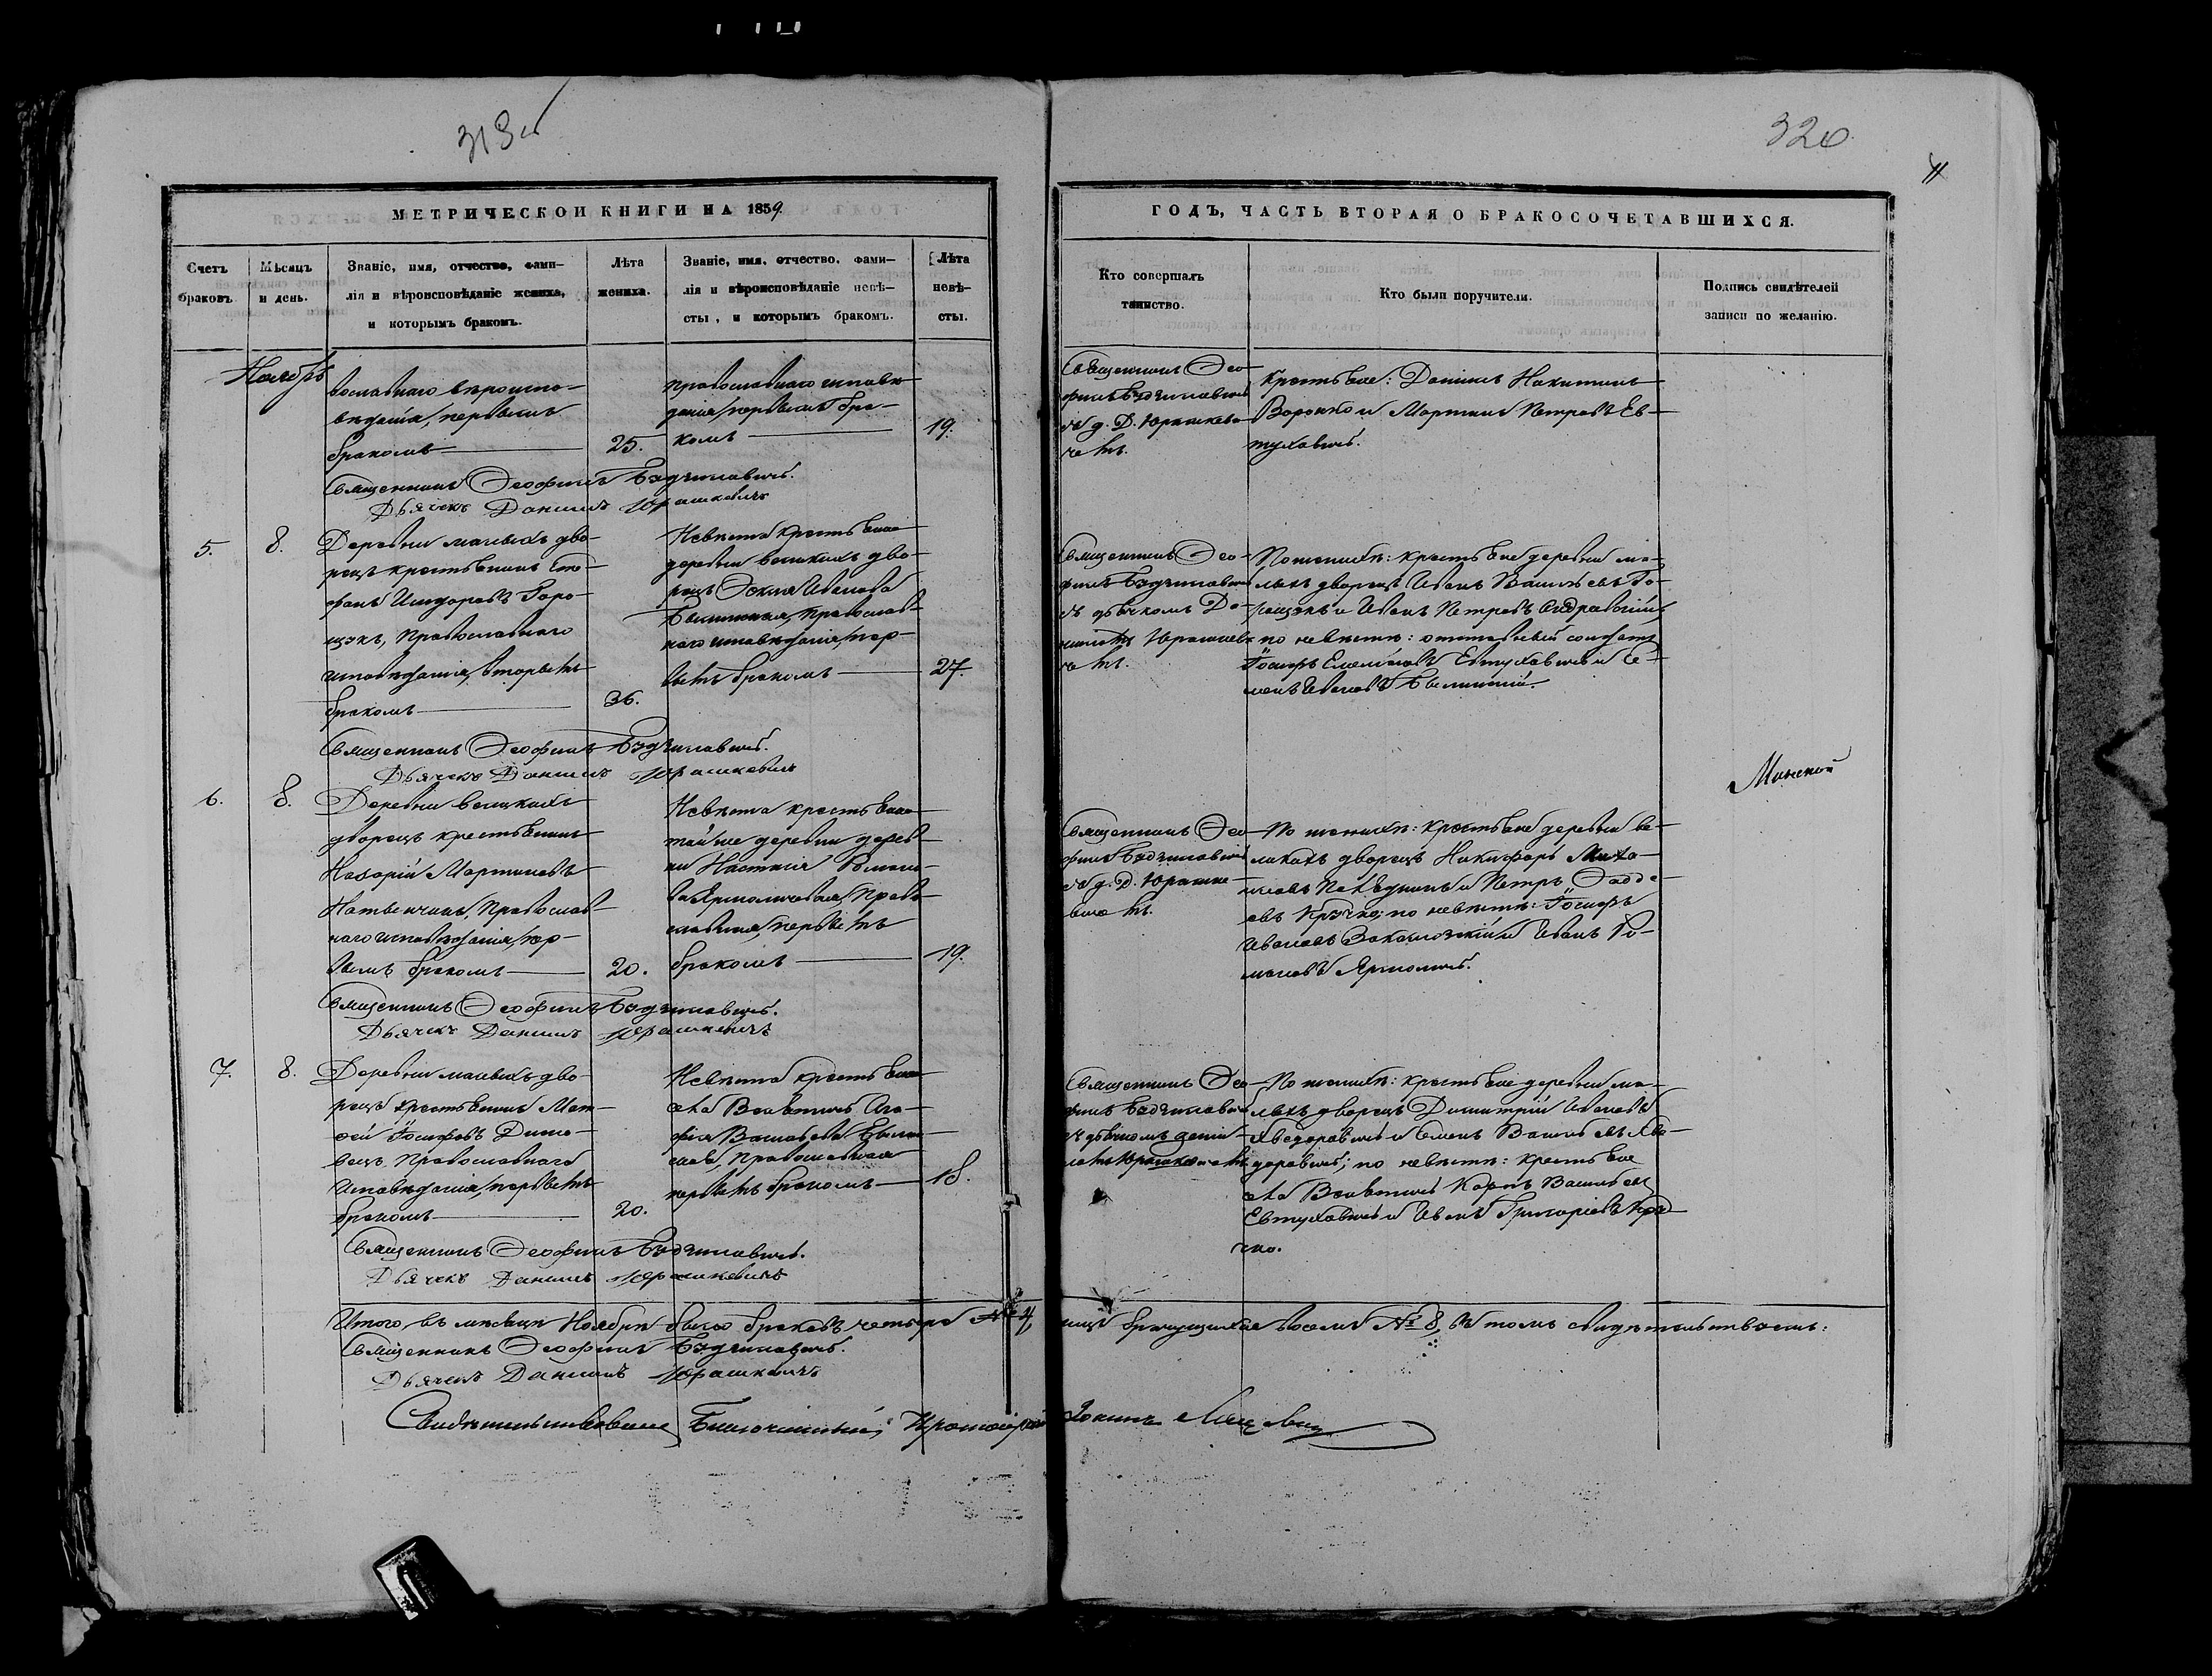 319 об
320
МЕТРИЧЕСКОЙ КНИГИ НА 1859
ГОДЪ, ЧАСТЬ ВТОРАЯ О БРАКОСОЧЕТАВШИХСЯ.
Счетъ браковъ.
Мѣсяцъ и день.
Званіе, имя, отчество, фами-
лія и вѣроисповѣданіе жениха,
и которымъ бракомъ.
Лѣта
жениха.
Званіе, имя, отчество, фами-
лія и вѣроисповѣданіе невѣ-
сты, и которымъ бракомъ.
Лѣта
невѣ-
сты.
Кто совершалъ
таинство.
Кто были поручители.
Подпись свидѣтелей
записи по желанію.
Ноябрь
вославнаго вѣроиспо-
вѣданія, первымъ
бракомъ 25.
православнаго исповѣ
данія, первымъ бра-
комъ 19.
Священникъ Ѳео-
филъ Бэдзилавичъ
съ д. Д. Юрашкеви-
чемъ.
Крестьяне: Даніилъ Никитинъ
Воронко и Мартинъ Петровъ Ев-
туховичъ.
Священникъ Ѳеофилъ Бэдзилавичъ.
Дьячекъ Даніилъ Юрашкевичъ
5. 8.
Деревни малыхъ дво-
рецъ крестьянинъ Сте-
фанъ Исидоровъ Горо-
щэкъ, Православнаго
исповѣданія, вторымъ
бракомъ 36.
Невѣста крестьянка
деревни великихъ дво-
рецъ Ѳекла Иванова
Былинская, Православ-
наго исповѣданія, пер-
вымъ бракомъ 27.
Священникъ Ѳео-
филъ Бэдзилавичъ
съ дьячкомъ Да-
ниломъ Юрашкеви-
чемъ.
По женихѣ: крестьяне деревни ма-
лыхъ дворецъ Иванъ Васильевъ Го-
рощэкъ и Иванъ Петровъ
по невѣстѣ: отставный солдатъ
Іосифъ Евтуховичъ и Се-
менъ Ивановъ Былинскій.
Священникъ Ѳеофилъ Бэдзилавичъ.
Дьячекъ Даніилъ Юрашкевичъ
6. 8.
Деревни великихъ
дворецъ крестьянинъ
Назарій Мартиновъ
Православ-
наго исповѣданія, пер-
вымъ бракомъ 20.
Невѣста крестьянка
той же деревни дерев-
ни Настасія Романо-
ва Ярмоличова, Право-
славная, первымъ
бракомъ 19.
Священникъ Ѳео-
филъ Бэдзилавичъ
съ д. Д. Юрашке-
вичемъ.
По женихѣ: крестьяне деревни ве-
ликихъ дворецъ Никифоръ Миха-
иловъ и Петръ Ѳадде-
евъ Кручко; по невѣстѣ: Іосифъ
Ивановъ и Иванъ Ро-
мановъ Ярмоличъ.
Минской
Священникъ Ѳеофилъ Бэдзилавичъ.
Дьячекъ Даніилъ Юрашкевичъ
7. 8.
Деревни малыхъ дво-
рецъ крестьянинъ Мат-
ѳей Іосифовъ
Православнаго
Исповѣданія, первымъ
бракомъ 20.
Невѣста крестьянка
села Ага-
фія Васильева
Православная
первымъ бракомъ 18.
Священникъ Ѳео-
филъ Бэдзилавичъ
съ дьячкомъ Дани-
ломъ Юрашкевичемъ
По женихѣ: крестьяне деревни ма-
лыхъ дворецъ Димитрій Ивановъ
Хведоровичъ и Семенъ Васильевъ Хве-
доровичъ; по невѣстѣ: крестьяне
села Карпъ Васильевъ
Евтуховичъ и Иванъ Григоріевъ Кру-
чко.
Священникъ Ѳеофилъ Бэдзилавичъ.
Дьячекъ Даніилъ Юрашкевичъ
Итого въ мѣсяцѣ Ноябрѣ было браковъ четыре № 4, лицъ брачущихся восемь № 8, въ томъ свидѣтельствуемъ:
Священникъ Ѳеофилъ Бэдзилавичъ.
Дьячекъ Даніилъ Юрашкевичъ
Свидѣтельствовалъ Благочинный, Протоіерей